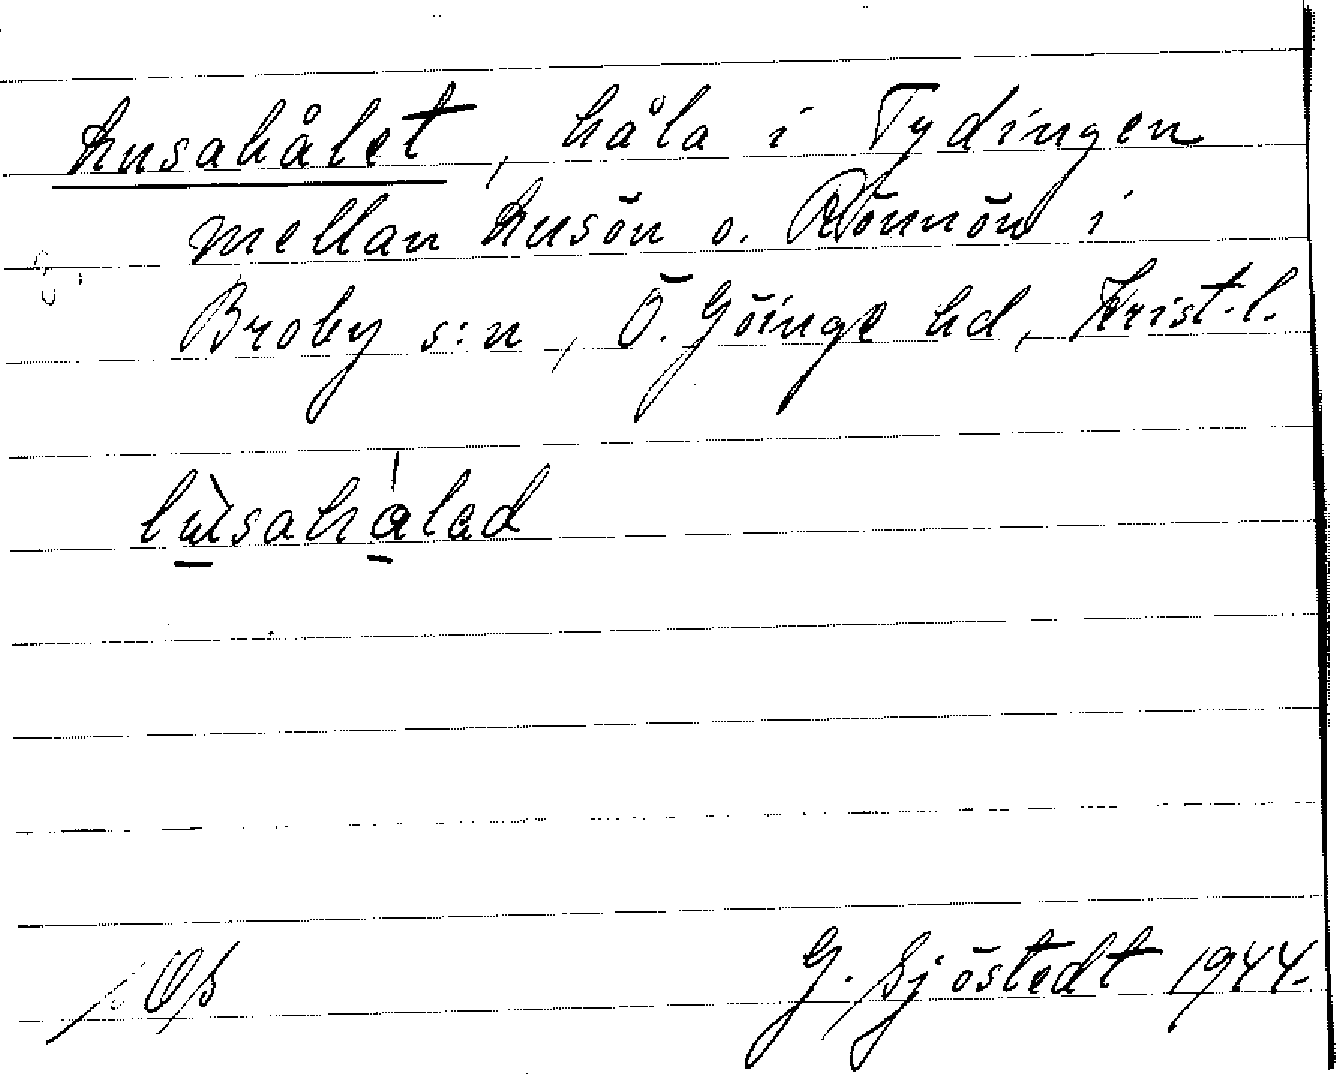 Lusahålet, håla i Tydingen
mellan Lusön o. Rönnön i
Broby s:n, Ö. Göinge hd, Krist. l.
lusahalad
G. Sjöstedt 1944.